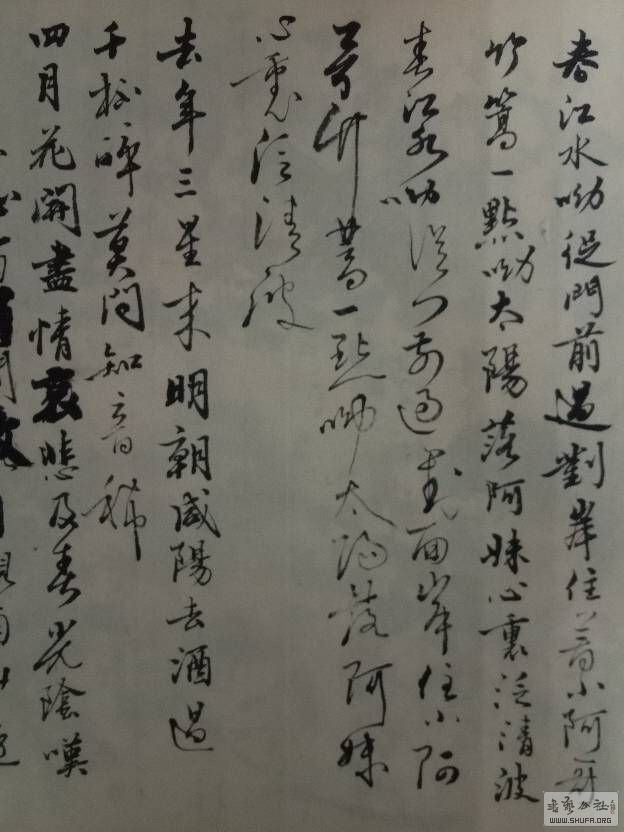 春江水呦從門前過對岸住着小阿哥
竹篙一點呦太陽落阿妹心裏泛清波
春江水呦從門前過對面岸住小阿
哥竹篙一點呦太陽落阿妹
心裏泛清波
去年三星來明朝咸陽去酒過
千杯醉莫問知音稀
四月花開盡情哀悲及春光陰嘆
WWW.SHUFA.ORG